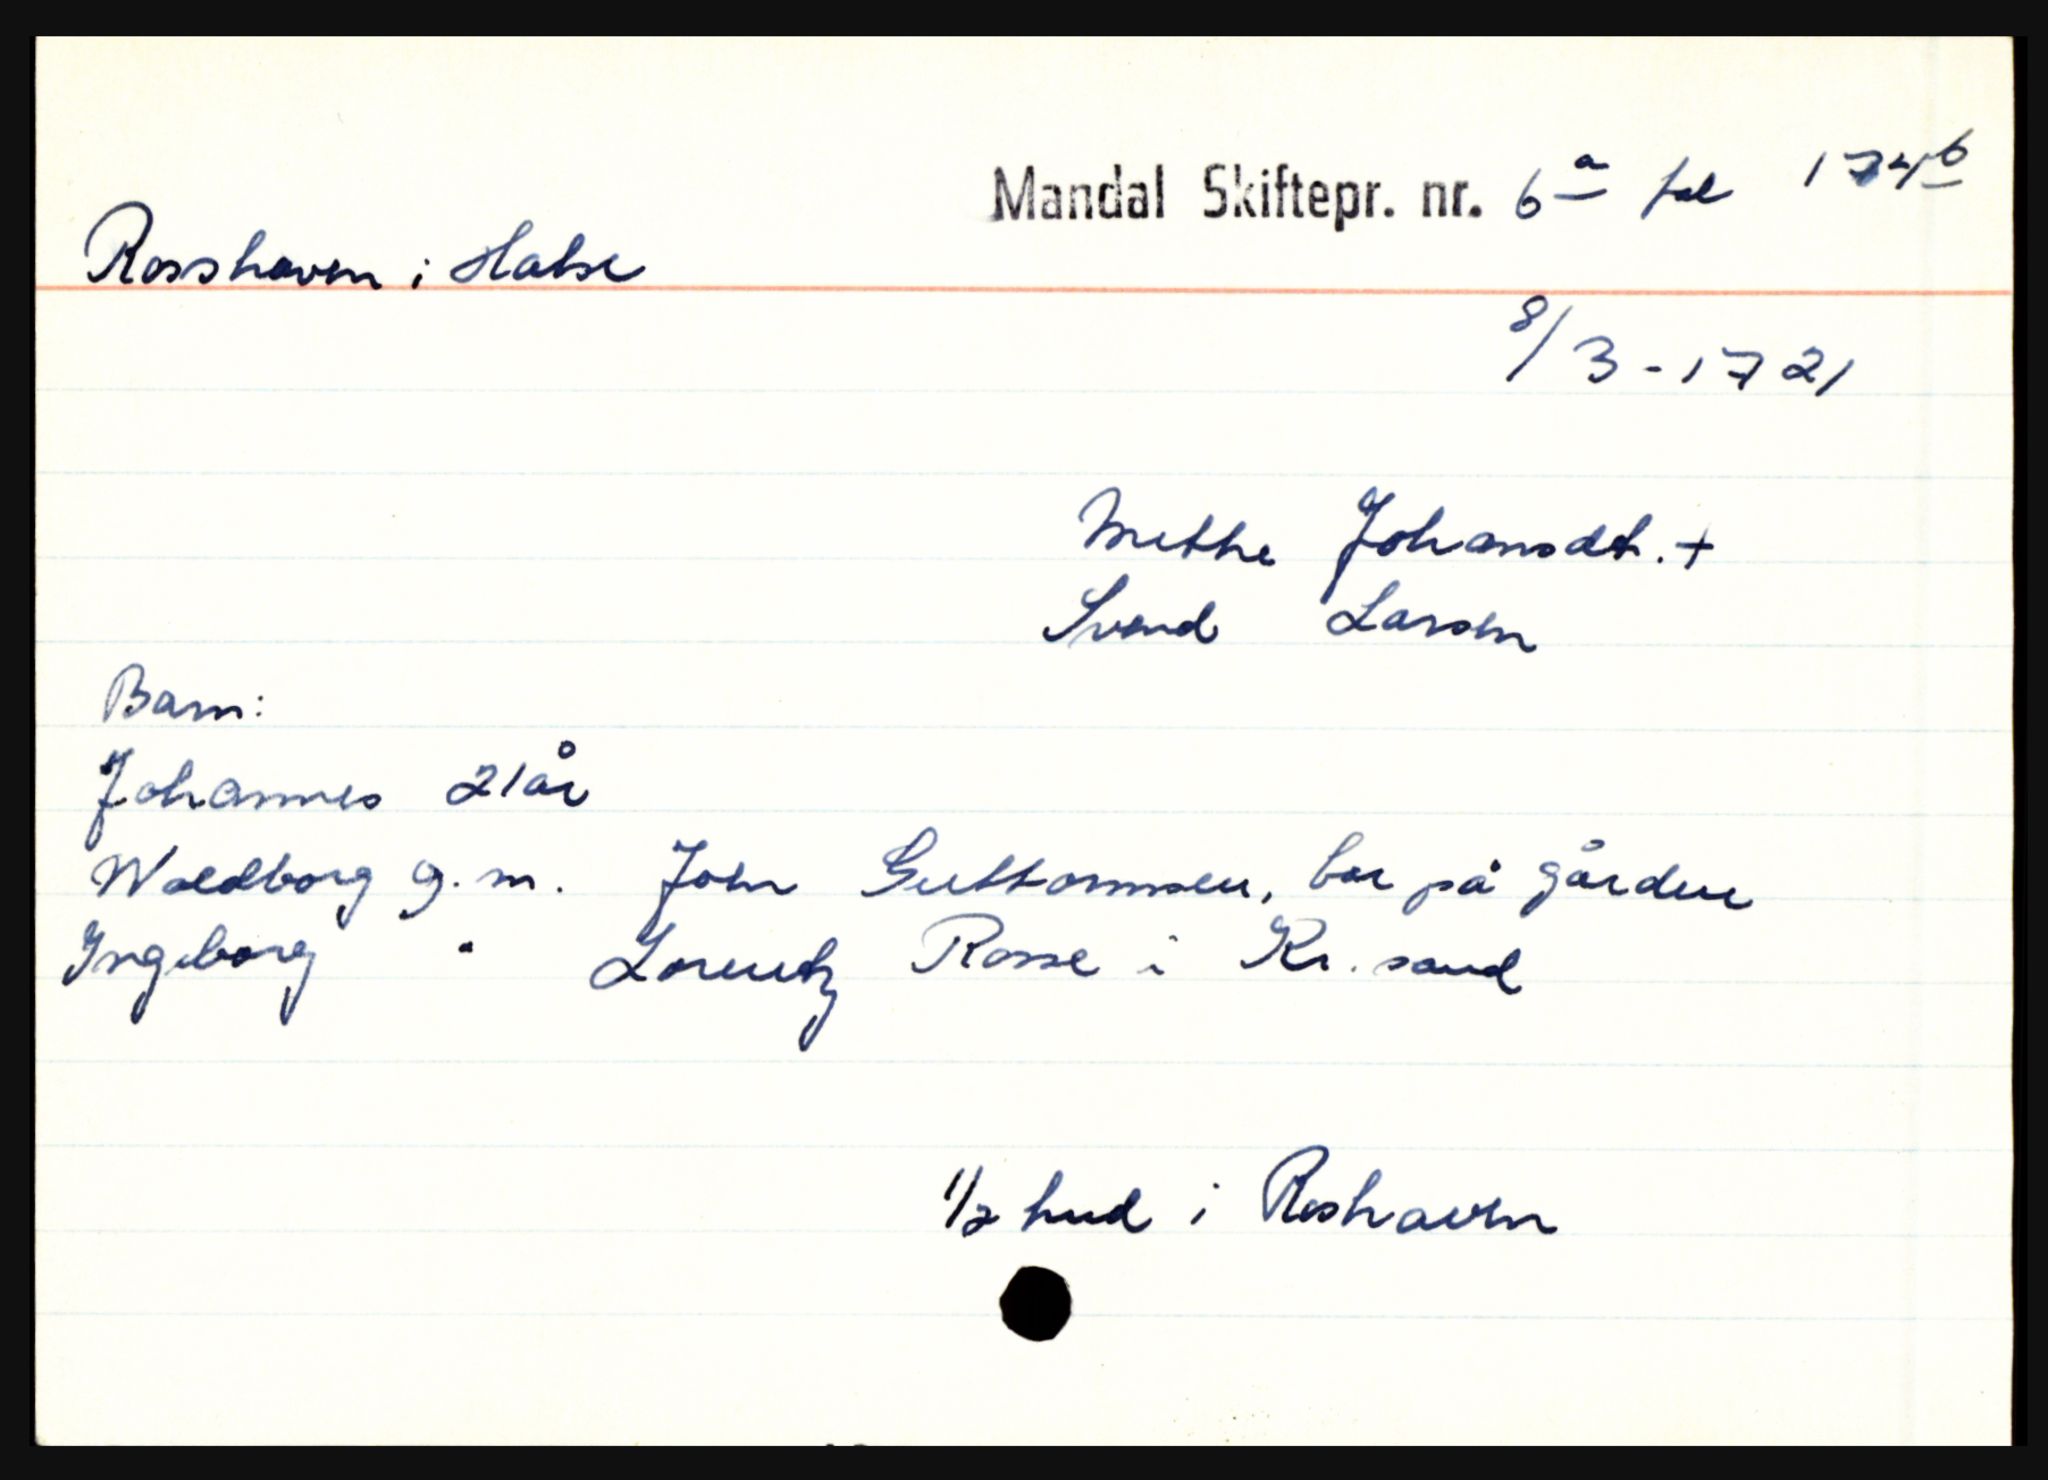 Mandal Skiftepr. nr. 6a fol 174b
Rosshaven i Halse
8/3-1721
Methe Johansdt. +
Svend Larsen
Barn:
Johannes 21 år
Woldborg g.m. John Guttormsen, bor på gården
Ingeborg " Lorentz Rosse i Kr.sand
1/2 hud i Roshaven